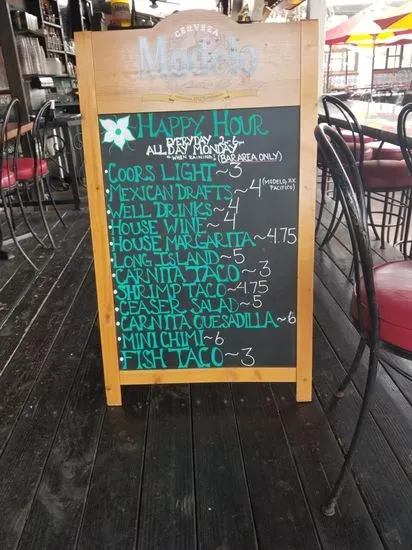 CERVEZA
Modelo
HAPPY HOUR
EVERYDAY 2-5
ALL DAY MONDAY &
"WHEN RAINING" (BAR AREA ONLY)
COORS LIGHT ~ 3
MEXICAN DRAFTS ~ 4 (MODELO, XX
PACIFICO)
WELL DRINKS ~ 4
HOUSE WINE ~ 4
HOUSE MARGARITA ~ 4.75
LONG ISLAND ~ 5
CARNITA TACO ~ 3
SHRIMP TACO ~ 4.75
CEASER SALAD ~ 5
CARNITA QUESADILLA ~ 6
MINI CHIMI ~ 6
FISH TACO ~ 3